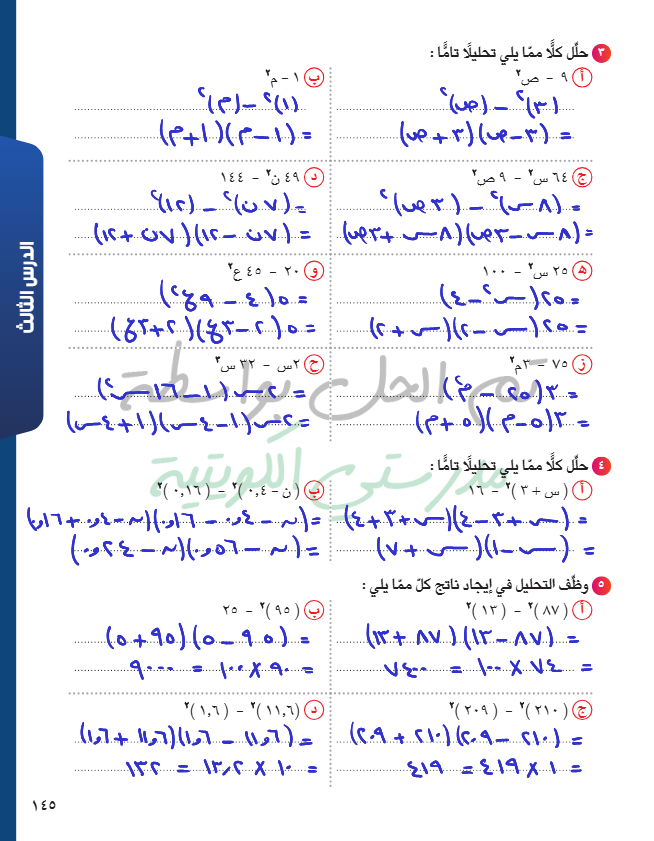 ٣ حلِّل كلًّا ممّا يلي تحليلًا تامًّا :
أ ٩ - ص٢
(٣)٢ - (ص)٢
= (٣ - ص)(٣ + ص)
ب ١ - م٢
(١)٢ - (م)٢
= (١ - م)(١ + م)
ج ٦٤ س٢ - ٩ ص٢
= (٨ س)٢ - (٣ ص)٢
= (٨ س - ٣ ص)(٨ س + ٣ ص)
د ٤٩ ن٢ - ١٤٤
= (٧ ن)٢ - (١٢)٢
= (٧ ن - ١٢)(٧ ن + ١٢)
ه ٢٥ س٢ - ١٠٠
= ٢٥ (س٢ - ٤)
= ٢٥ (س - ٢)(س + ٢)
و ٢٠ - ٤٥ ع٢
= ٥ (٤ - ٩ ع٢)
= ٥ (٢ - ٣ ع)(٢ + ٣ ع)
ز ٧٥ - ٣ م٢
= ٣ (٢٥ - م٢)
= ٣ (٥ - م)(٥ + م)
ح ٢ س - ٣٢ س٣
= ٢ س (١ - ١٦ س٢)
= ٢ س (١ - ٤ س)(١ + ٤ س)
تم الحل بواسطة
مدرستي الكويتية
٤ حلِّل كلًّا ممّا يلي تحليلًا تامًّا :
أ (س + ٣)٢ - ١٦
= (س + ٣ - ٤)(س + ٣ + ٤)
= (س - ١)(س + ٧)
ب (ن - ٠,٤)٢ - (٠,١٦)٢
= (ن - ٠,٤ - ٠,١٦)(ن - ٠,٤ + ٠,١٦)
= (ن - ٠,٥٦)(ن - ٠,٢٤)
٥ وظِّف التحليل في إيجاد ناتج كلّ ممّا يلي :
أ (٨٧)٢ - (١٣)٢
= (٨٧ - ١٣)(٨٧ + ١٣)
= ٧٤ × ١٠٠ = ٧٤٠٠
ب (٩٥)٢ - ٢٥
= (٩٥ - ٥)(٩٥ + ٥)
= ٩٠ × ١٠٠ = ٩٠٠٠
ج (٢١٠)٢ - (٢٠٩)٢
= (٢١٠ - ٢٠٩)(٢١٠ + ٢٠٩)
= ١ × ٤١٩ = ٤١٩
د (١١,٦)٢ - (١,٦)٢
= (١١,٦ - ١,٦)(١١,٦ + ١,٦)
= ١٠ × ١٣,٢ = ١٣٢
الدرس الثالث
١٤٥